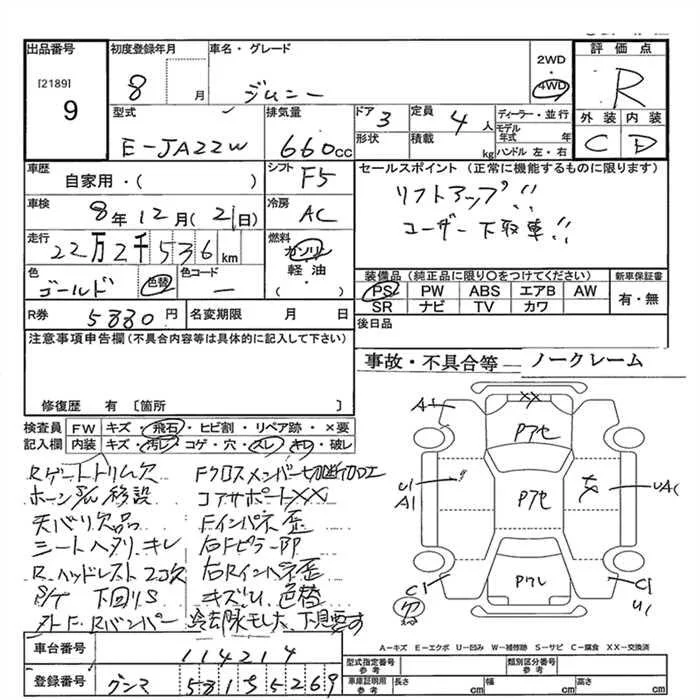 出品番号
[2189]
9
初度登録年月
8 月
車名・グレード
ジムニー
2WD
・
4WD
評価点
R
型式
E-JA22W
排気量
660cc
ドア 3
形状
定員 4 人
積載 kg
ディーラー・並行
モデル年式 年
ハンドル 左・右
外装 内装
C D
車歴
自家用・( )
シフト F5
セールスポイント (正常に機能するものに限ります)
リフトアップ!!
ユーザー下取車!!
車検
8年12月(21日)
冷房 AC
走行
22万2千536km
燃料
ガソリン
軽油・
( )
色
ゴールド 色替
色コード
ー
装備品 (純正品に限り〇をつけてください)
PS PW ABS エアB AW
SR ナビ TV カワ
新車保証書
有・無
R券 5880円
名変期限 月 日
後日品
注意事項申告欄(不具合内容等は具体的に記入して下さい)
修復歴 有 〔箇所 〕
事故・不具合等 ノークレーム
検査員記入欄
FW キズ・飛石・ヒビ割・リペア跡・×要
内装 キズ・汚レ・コゲ・穴・スレ・キレ・破レ
Rゲートトリム欠
Fクロスメンバー切断加工
ホーン 移設
コアサポートXX
天バリ欠品
Fインパネ歪
シートヘタリ、キレ
右Fピラー
R、ヘッドレスト2コ欠
右Rインパネ歪
下回りS
キズU 色替
Rバンパー
下見要す
A1
XX
Pアセ
U1
A1
Pアセ
UA
Pアセ
C1
C1
U1
車台番号
114214
登録番号
グンマ 581 5 5269
A－キズ E－エクボ U－凹み W－補修跡 S－サビ C－腐食 XX－交換済
型式指定番号
参考
類別区分番号
参考
車庫証明用
参考
長さ cm 幅 cm 高さ cm